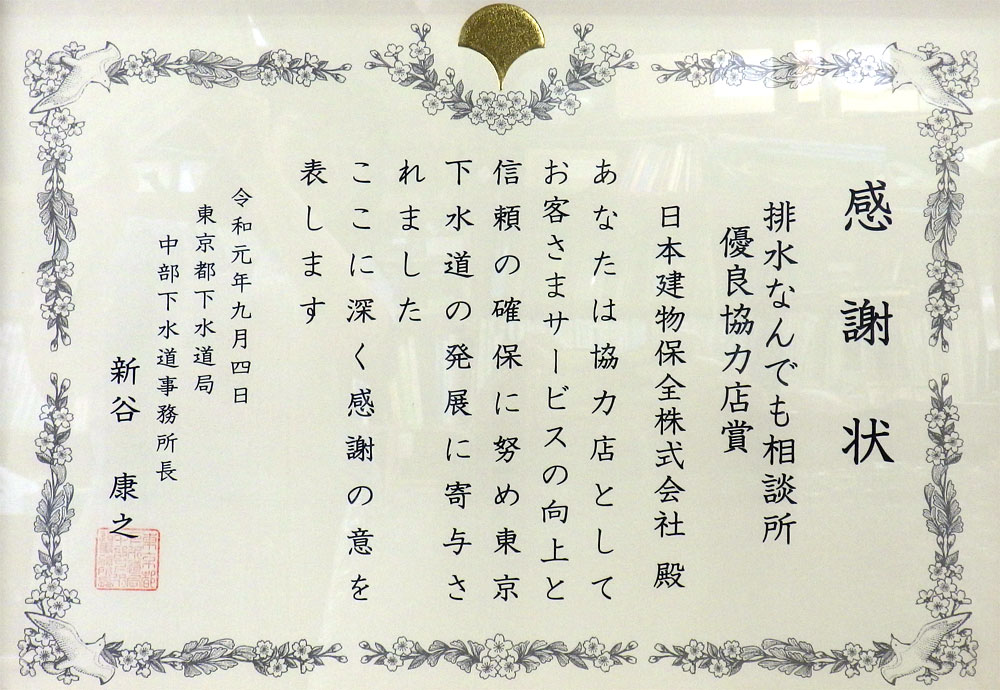 感謝状
排水なんでも相談所
優良協力店賞
日本建物保全株式会社 殿
あなたは協力店として
お客さまサービスの向上と
信頼の確保に努め東京
下水道の発展に寄与さ
れました
ここに深く感謝の意を
表します
令和元年九月四日
東京都下水道局
中部下水道事務所長
新谷 康之